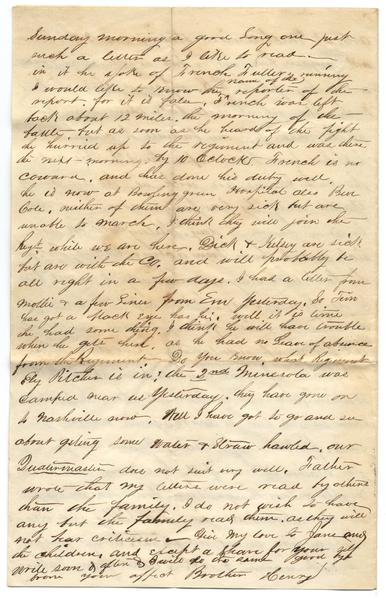 Sunday morning a good long one just
such a letter as I like to read.
in it he spoke of French Fuller's running
I would like to know the name of the reporter of the
report. for it is false. French was left
back about 12 miles. the morning of the
battle but as soon as he heard of the fight
he hurried up to the regiment and was there
the next morning by 10 Oclock French is no
coward. and has done his duty well.
he is now at Bowling green Hospital also Ben
Cole, neither of them are very sick but are
unable to march. I think they will join the
Regt while we are here. Dick & Kelsey are sick
but are with the Co. and will probably be
all right in a few days. I had a letter from
Mollie & a few lines from Em Yesterday. So Tim
has got a black eye has he. well it is time
she had some thing. I think he will have trouble
when he gets here. as he had no leave of absence
from the Regiment. Do You Know what Regiment
Pitcher is in; the 2nd Minesota was
camped near us Yesterday. they have gone on
to Nashville now. Well I have got to go and see
about geting some Water & Straw hawled, our
Quatermaster does not suit very well. Father
wrote that my letters were read by others
than the family. I do not wish to have
any but the family read them. as they will
not bear criticism. Give my love to Jane and
the children, and except a share for your self
write soon & often & I will do the same good by
from your affect Brother Henry